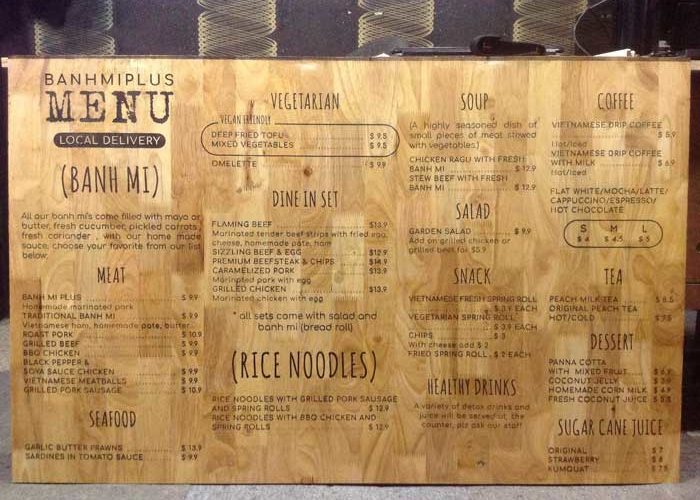 BANHMIPLUS
MENU
LOCAL DELIVERY
(BANH MI)
All our banh mi's come filled with mayo or
butter, fresh cucumber, pickled carrots,
fresh coriander , with our home made
sauce, choose your favorite from our list
below;
MEAT
BANH MI PLUS $ 9.9
Homemade marinated pork
TRADITIONAL BANH MI $ 9.9
Vietnamese ham, homemade pate, butter
ROAST PORK $ 10.9
GRILLED BEEF $ 9.9
BBQ CHICKEN $ 9.9
BLACK PEPPER &
SOYA SAUCE CHICKEN $ 9.9
VIETNAMESE MEATBALLS $ 9.9
GRILLED PORK SAUSAGE $ 10.9
SEAFOOD
GARLIC BUTTER PRAWNS $ 13.9
SARDINES IN TOMATO SAUCE $ 9.9
VEGETARIAN
VEGAN FRIENDLY
DEEP FRIED TOFU $ 9.5
MIXED VEGETABLES $ 9.5
OMELETTE $ 9.9
DINE IN SET
FLAMING BEEF $13.9
Marinated tender beef strips with fried egg,
cheese, homemade pate, ham
SIZZLING BEEF & EGG $12.9
PREMIUM BEEFSTEAK & CHIPS $14.9
CARAMELIZED PORK $13.9
Marinated pork with egg
GRILLED CHICKEN $13.9
Marinated chicken with egg
* all sets come with salad and
banh mi (bread roll)
(RICE NOODLES)
RICE NOODLES WITH GRILLED PORK SAUSAGE
AND SPRING ROLLS $ 12.9
RICE NOODLES WITH BBQ CHICKEN AND
SPRING ROLLS $ 12.9
SOUP
(A highly seasoned dish of
small pieces of meat stewed
with vegetables)
CHICKEN RAGU WITH FRESH
BANH MI $ 12.9
STEW BEEF WITH FRESH
BANH MI $ 12.9
SALAD
GARDEN SALAD $ 9.9
Add on grilled chicken or
grilled beef for $3.9
SNACK
VIETNAMESE FRESH SPRING ROLL
$ 3.9 EACH
VEGETARIAN SPRING ROLL
$ 3.9 EACH
CHIPS $ 5
With cheese add $ 2
FRIED SPRING ROLL . $ 2 EACH
HEALTHY DRINKS
A variety of detox drinks and
juice will be served at the
counter, plz ask our staff
COFFEE
VIETNAMESE DRIP COFFEE
$ 5.9
Hot/Iced
VIETNAMESE DRIP COFFEE
WITH MILK $ 6.9
Hot/Iced
FLAT WHITE/MOCHA/LATTE/
CAPPUCCINO/ESPRESSO/
HOT CHOCOLATE
S M L
$ 4 $ 4.5 $ 5
TEA
PEACH MILK TEA $ 8.5
ORIGINAL PEACH TEA
HOT/COLD $ 7.5
DESSERT
PANNA COTTA
WITH MIXED FRUIT
COCONUT JELLY
HOMEMADE CORN MILK
FRESH COCONUT JUICE
SUGAR CANE JUICE
ORIGINAL $ 7
STRAWBERRY
KUMQUAT